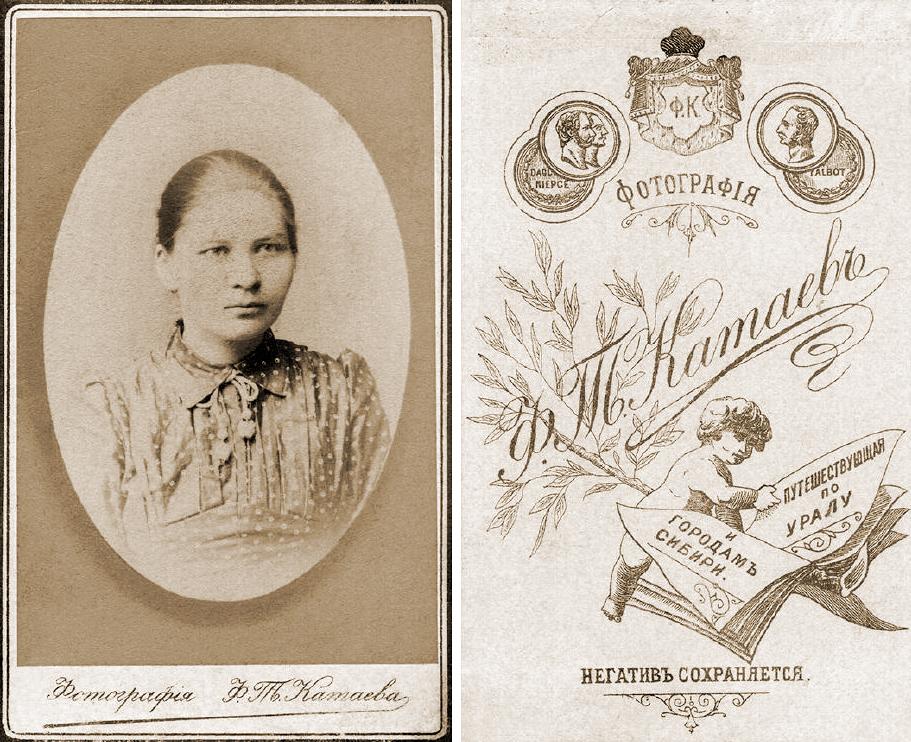 Фотографія Ф.Т. Катаева
Ф.К.
DAGU
NIEPCE
TALBOT
ФОТОГРАФІЯ
Ф.Т. Катаевъ
ПУТЕШЕСТВУЮЩАЯ
ПО
УРАЛУ
И
ГОРОДАМЪ
СИБИРИ.
НЕГАТИВЪ СОХРАНЯЕТСЯ.